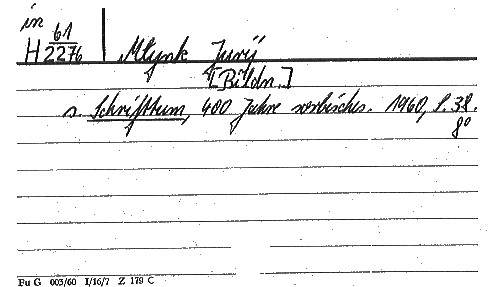 in
H 61/2276 Mlynk Jurij
[Bildn.]
s. Schrifttum, 400 Jahre sorbisches. 1960, S. 38.
8°
Fu G 003/60 I/16/7 Z 179 C